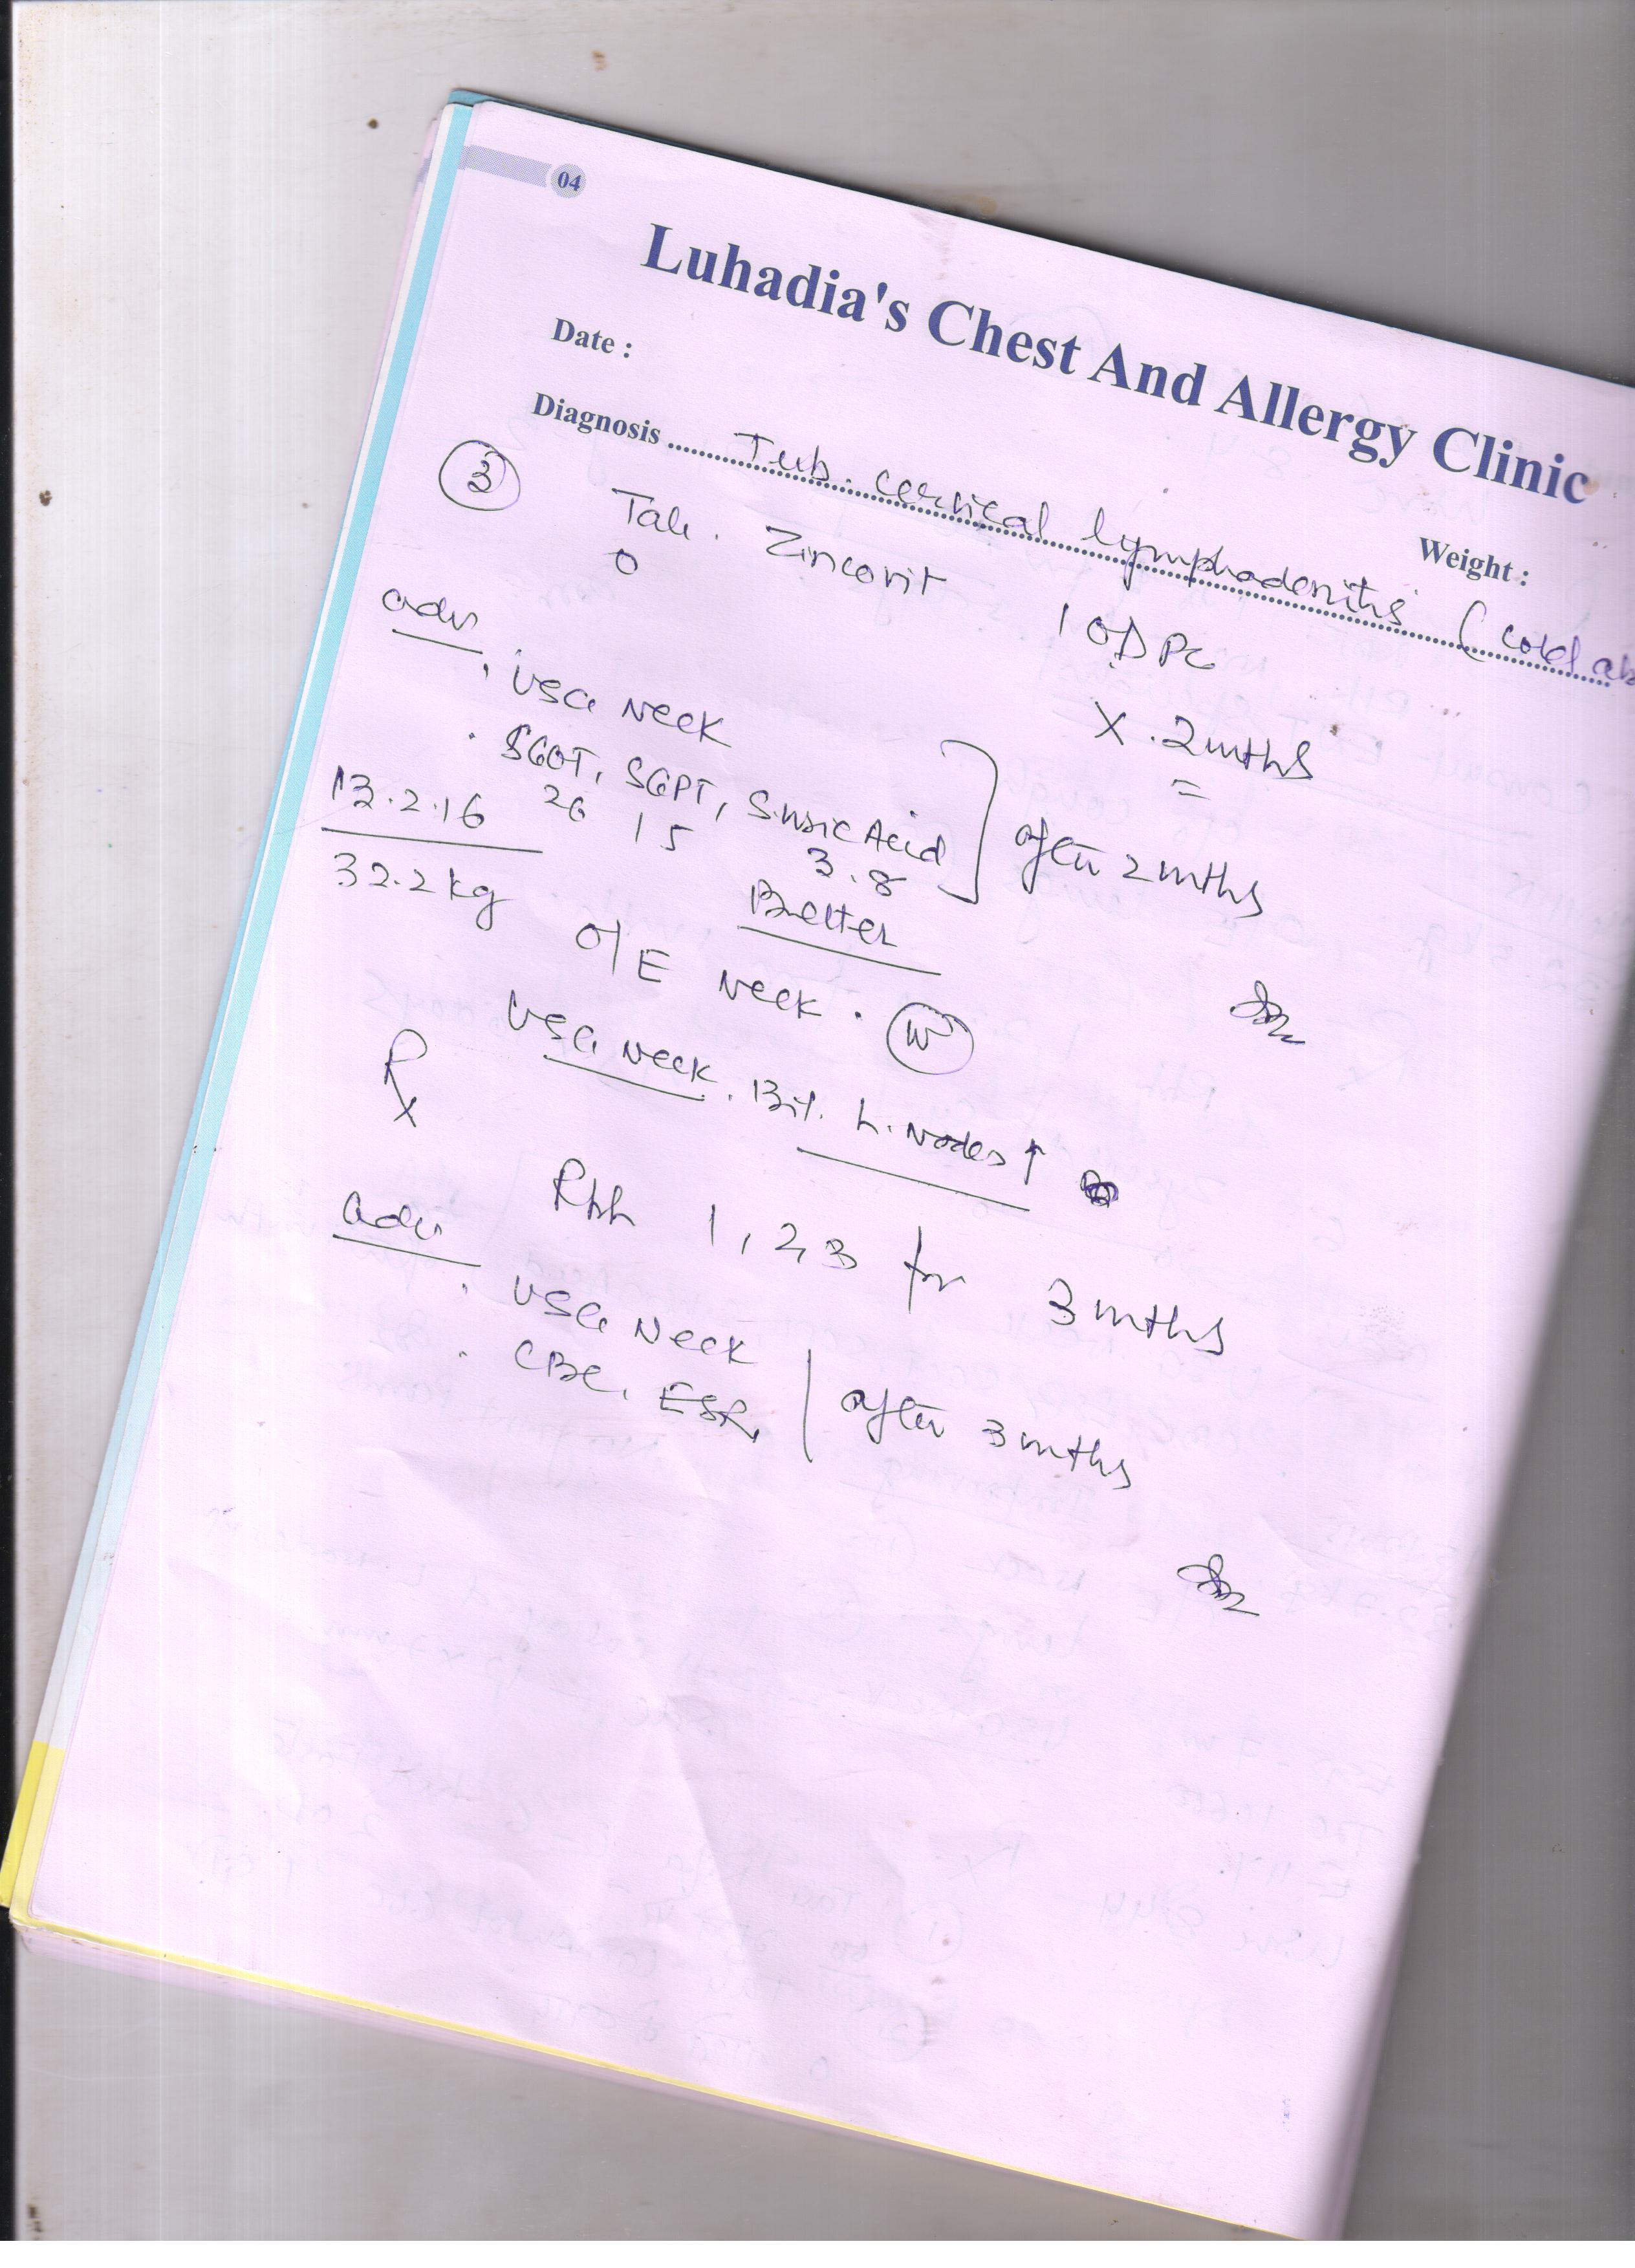 04
Luhadia's Chest And Allergy Clinic
Date :
Weight :
Diagnosis Tub. cervical lymphadenitis (cold ab
3 Tab. Zincovit 1 OD PC
X . 2 mths
adv
. USG Neck
. SGOT, SGPT, S. uric Acid ] after 2 mths
26 15 3.8
13.2.16
32.2 kg
Better
O/E Neck . N
USG Neck . Bil. L. Nodes ↑
Rx
Rpt 1, 2, 3 for 3 mths
adv
. USG Neck
. CBC, ESR, | after 3 mths